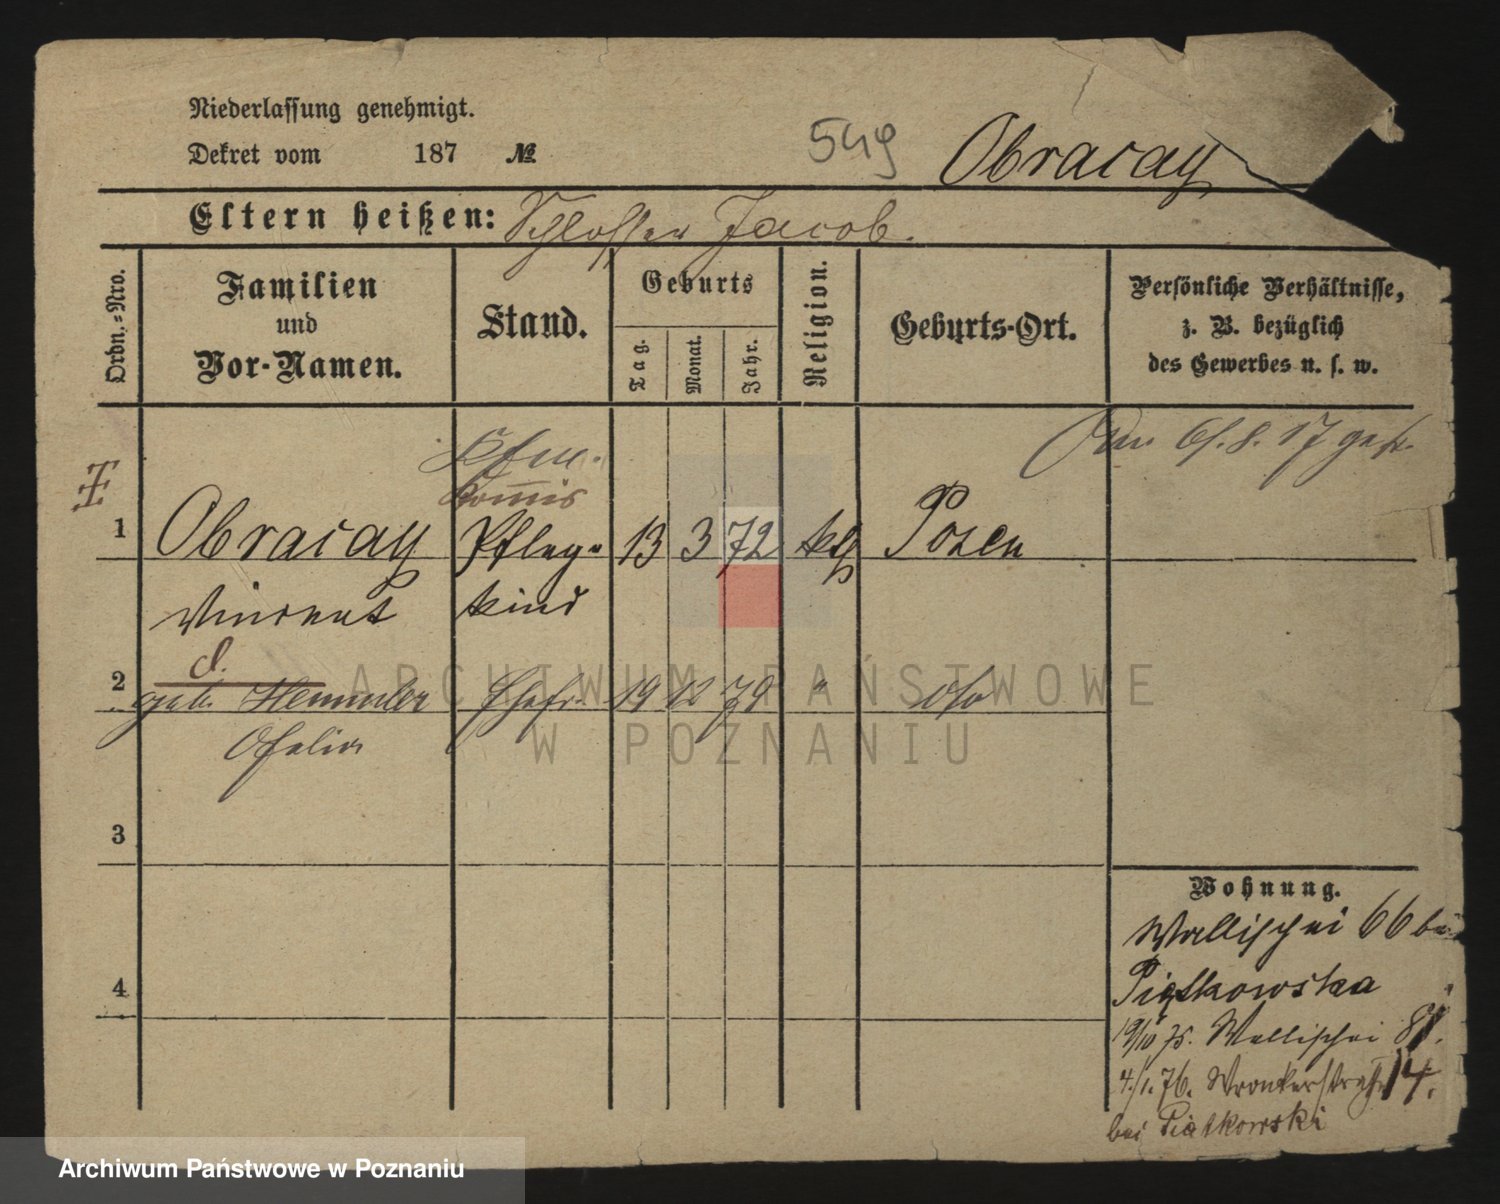 Niederlassung genehmigt.
Dekret vom 187 №
549
Obracay
Eltern heißen: Schlosser Jacob.
Ordn.-Nro.
Familien
und
Vor-Namen.
Stand.
Geburts
Tag.
Monat.
Jahr.
Religion.
Geburts-Ort.
Persönliche Verhältnisse,
z. B. bezüglich
des Gewerbes u. s. w.
Kfm.
Commis
1 Obracay Pfleg= 13 3 72 kth Posen
Vincent kind
d.
2 geb. Hemmler Ehefr. 19 12 78 "
Ofelia
3
4
Wohnung.
Wallischei 66 bei
Piątkowska
19/10 75. Wallischei
4./1. 76. Wronkerstraße 14.
bei Piątkowski
ARCHIWUM PAŃSTWOWE
W POZNANIU
Archiwum Państwowe w Poznaniu